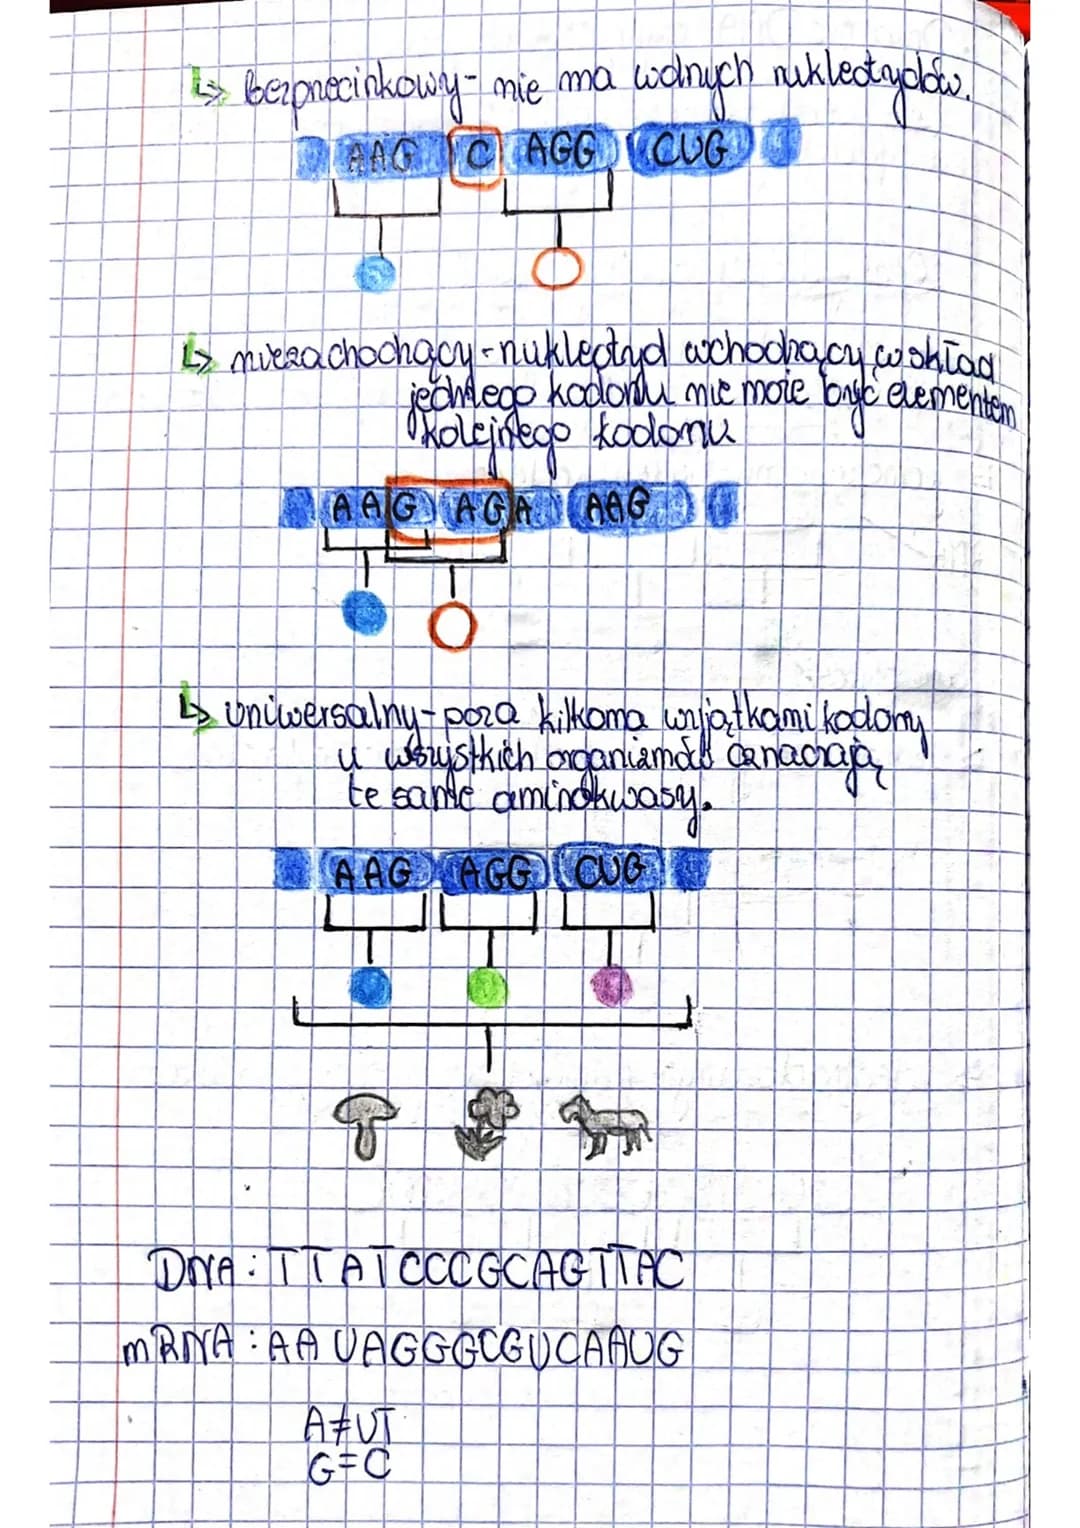 ↳ bezprzecinkowy - nie ma wolnych nukleotydów.
AAG C AGG CUG
↳ niezachodzący - nukleotyd wchodzący w skład
jednego kodonu nie może być elementem
kolejnego kodonu
AAG AGA AAG
↳ uniwersalny - poza kilkoma wyjątkami kodony
u wszystkich organizmów oznaczają
te same aminokwasy.
AAG AGG CUG
DNA: TTATCCCGCAGTTAC
mRNA: AAUAGGGCGUCAAUG
A≠UT
G=C